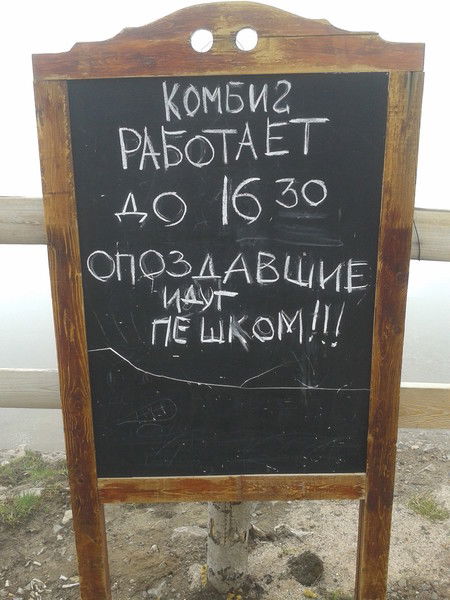 КОМБИ2
РАБОТАЕТ
ДО 16 30
ОПОЗДАВШИЕ
ИДУТ
ПЕШКОМ!!!